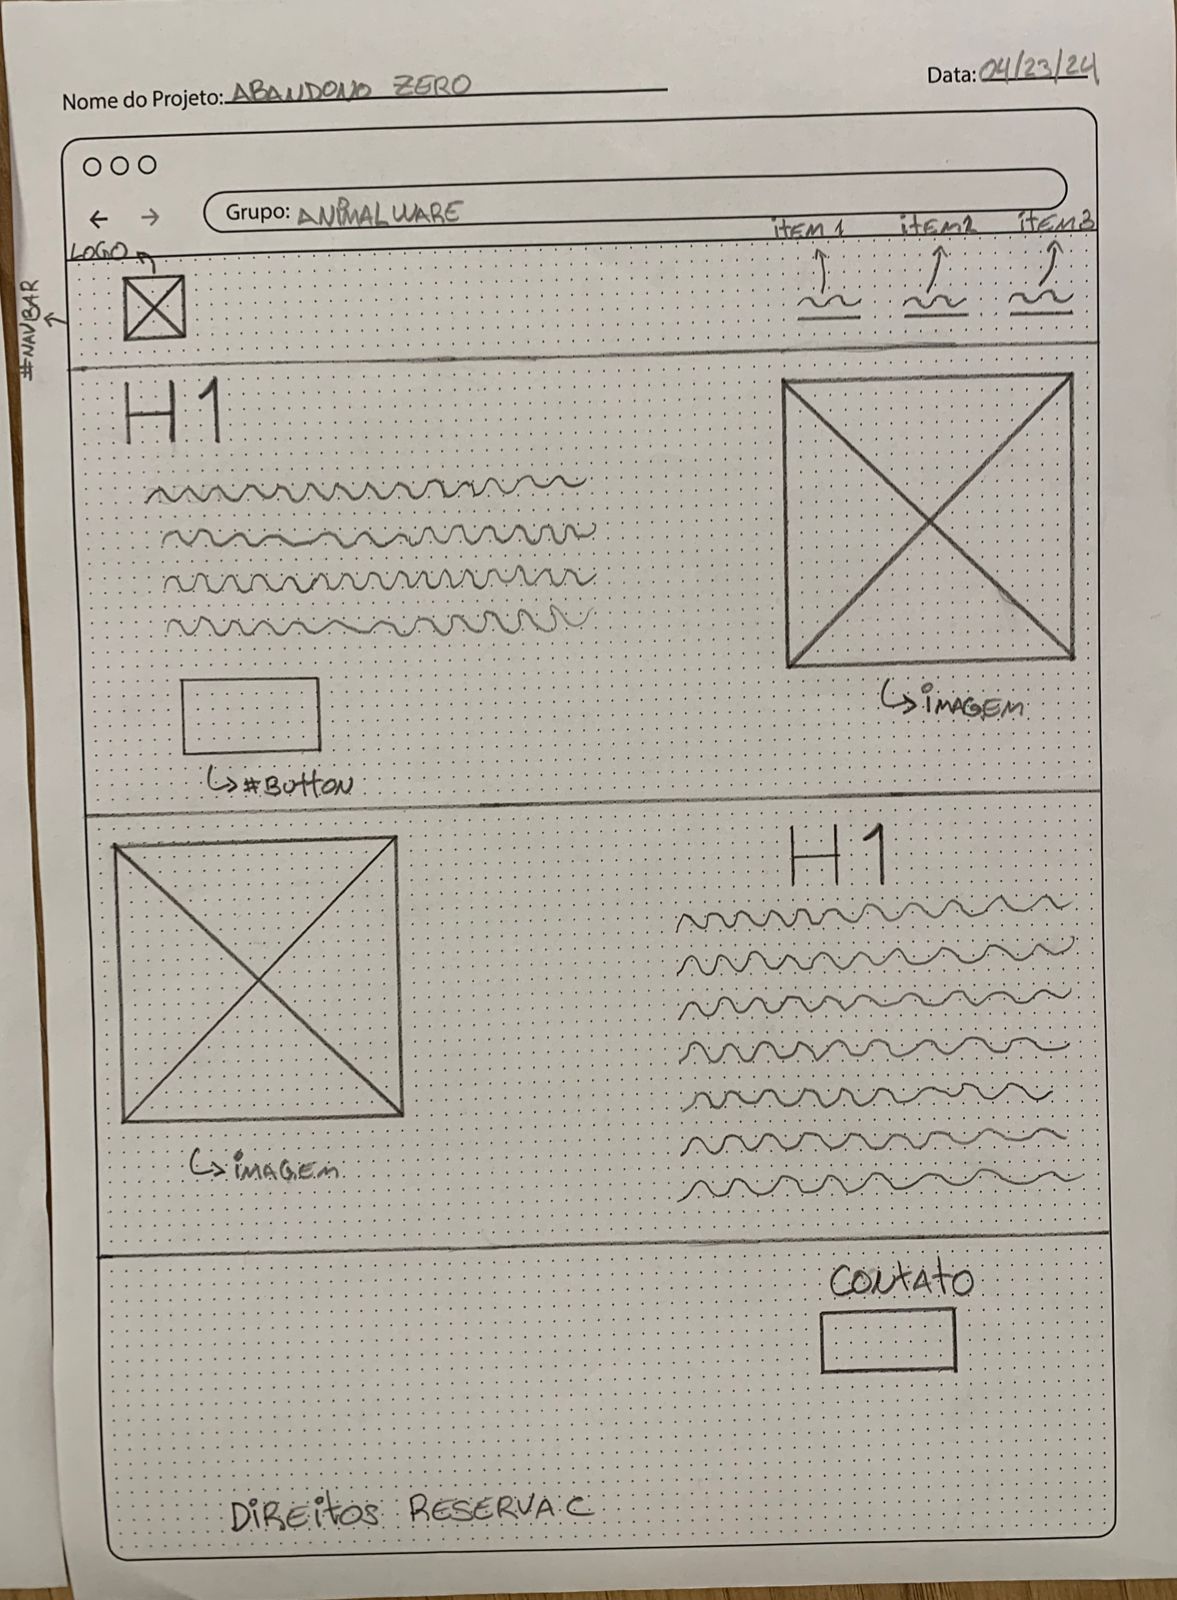 Nome do Projeto: ABANDONO ZERO
Data: 04/23/24
Grupo: ANIMALWARE
LOGO
iTEM 1 iTEM2 iTEM3
#NAVBAR
H1
iMAGEM
#BUttON
H1
iMAGEM
CONtAtO
DiREitOS RESERVA C